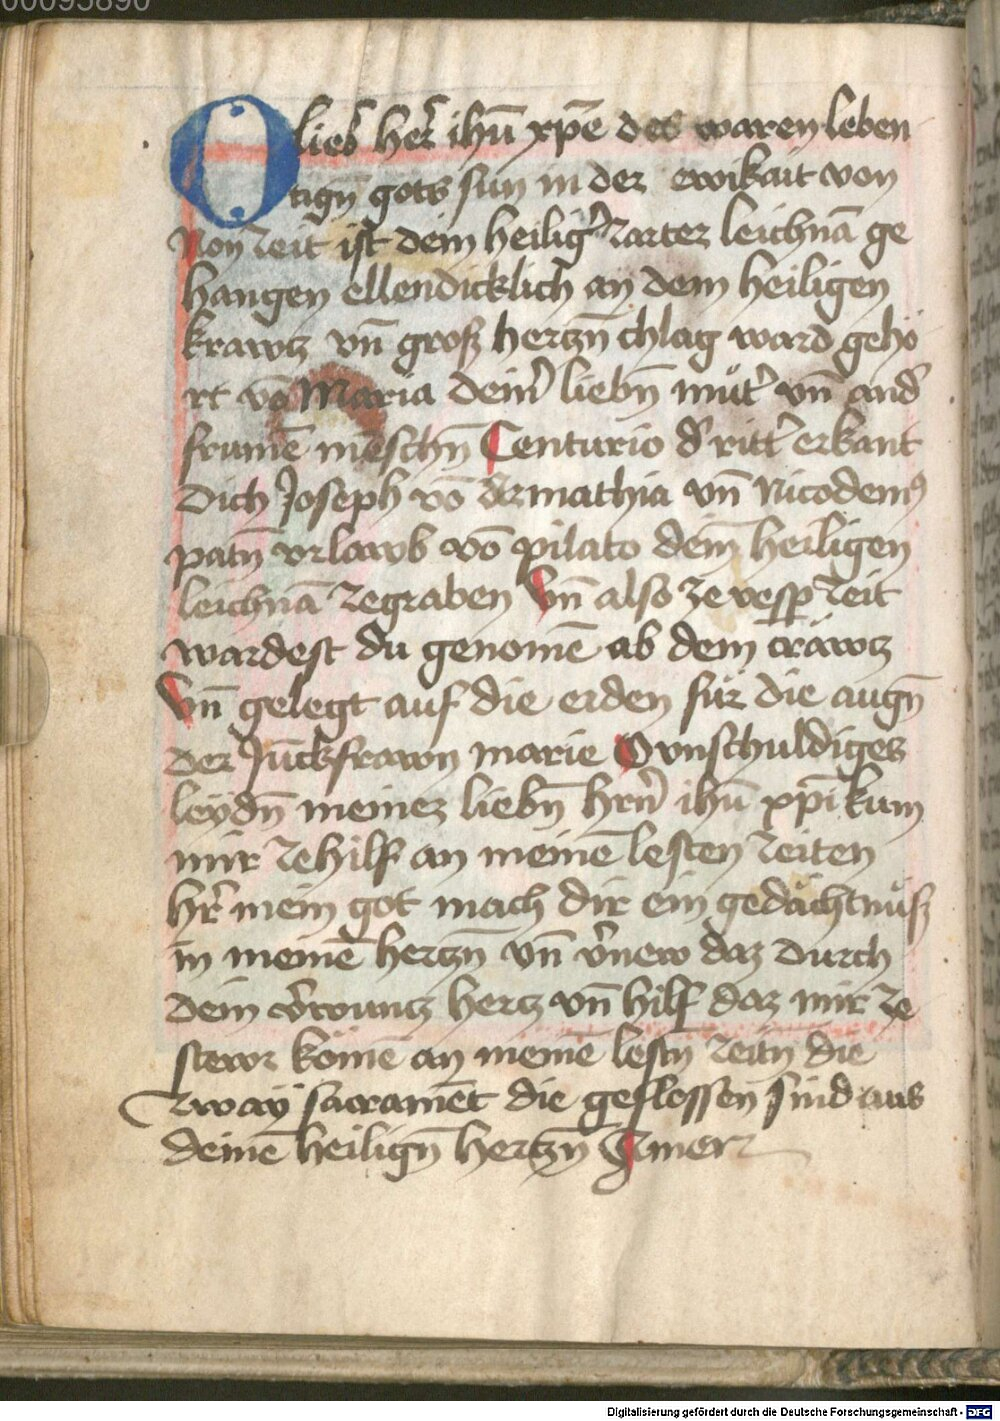 00095890
O lieb' her' ihū xp̄e des waren leben
tign̄ gots sun in der ewikait von
Non zeit ist dein heilig' zarter leichnā ge
hangen ellendicklich an dem heiligen
krawtz vn̄ groß hertzn̄ chlag ward gehö
rt vō Maria dein' liebn̄ mut' vn̄ and'
frumē mēschn̄ Centurio d' ritt' erkant
Dich Joseph vō Armathia vn̄ Nicodem9
patn̄ vrlawb vō pilato dem̄ heiligen
leichnā zegraben Vn̄ also ze vesp̱ zeit
wardest du genomē ab dem cräwtz
Vn̄ gelegt auf die erden für die augn̄
der Jūckfrawn marie O vnschuldiges
leydn̄ meinez liebn̄ hrn̄ ihū xp̄i kum
mir zehilf an meinē lesten zeiten
hr' mein got mach dir ein gedächtnüß
in meinē hertzn̄ vn̄ v'new daz durch
dein v'wuntz hertz vn̄ hilf daz mir ze
stewr kömē an meinē lestn̄ zeitn̄ die
zway sacramēt die geflossen sind aus
deinē heilign̄ hertzn̄ Amen
Digitalisierung gefördert durch die Deutsche Forschungsgemeinschaft - DFG